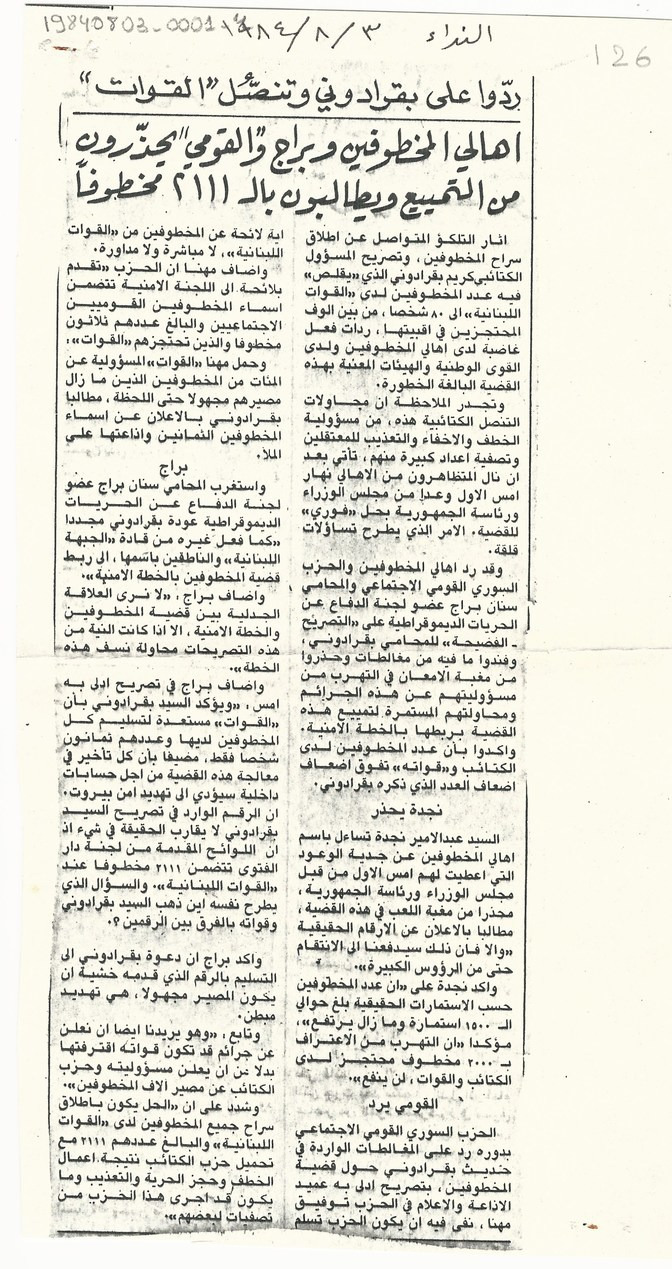 19840803-0001
النداء ٣/٨/١٩٨٤
126
ردّوا على بقرادوني وتنصّل "القوات"
اهالي المخطوفين وبراج و"القومي" يحذّرون
من التمييع ويطالبون بالـ ٢١١١ مخطوفاً
اثار التلكؤ المتواصل عن اطلاق
سراح المخطوفين، وتصريح المسؤول
الكتائبي كريم بقرادوني الذي «يقلص»
فيه عدد المخطوفين لدى «القوات
اللبنانية» الى ٨٠ شخصا، من بين الوف
المحتجزين في اقبيتها، ردات فعل
غاضبة لدى اهالي المخطوفين ولدى
القوى الوطنية والهيئات المعنية بهذه
القضية البالغة الخطورة.
وتجدر الملاحظة ان محاولات
التنصل الكتائبية هذه، من مسؤولية
الخطف والاخفاء والتعذيب للمعتقلين
وتصفية اعداد كبيرة منهم، تأتي بعد
ان نال المتظاهرون من الاهالي نهار
امس الاول وعدا من مجلس الوزراء
ورئاسة الجمهورية بحل «فوري»
للقضية. الامر الذي يطرح تساؤلات
قلقة.
وقد رد اهالي المخطوفين والحزب
السوري القومي الاجتماعي والمحامي
سنان براج عضو لجنة الدفاع عن
الحريات الديموقراطية على «التصريح
ـ الفضيحة» للمحامي بقرادوني،
وفندوا ما فيه من مغالطات وحذروا
من مغبة الامعان في التهرب من
مسؤوليتهم عن هذه الجرائم
ومحاولتهم المستمرة لتمييع هذه
القضية بربطها بالخطة الامنية.
واكدوا بأن عدد المخطوفين لدى
الكتائب و«قواته» تفوق اضعاف
اضعاف العدد الذي ذكره بقرادوني.
نجدة يحذر
السيد عبدالامير نجدة تساءل باسم
اهالي المخطوفين عن جدية الوعود
التي اعطيت لهم امس الاول من قبل
مجلس الوزراء ورئاسة الجمهورية،
محذرا من مغبة اللعب في هذه القضية،
مطالبا بالاعلان عن الارقام الحقيقية
«والا فان ذلك سيدفعنا الى الانتقام
حتى من الرؤوس الكبيرة».
واكد نجدة على «ان عدد المخطوفين
حسب الاستمارات الحقيقية بلغ حوالي
الـ ١٥٠٠ استمارة وما زال يرتفع»،
مؤكدا «ان التهرب من الاعتراف
بـ ٢٠٠٠ مخطوف محتجز لدى
الكتائب والقوات، لن ينفع».
القومي يرد
الحزب السوري القومي الاجتماعي
بدوره رد على المغالطات الواردة في
حديث بقرادوني حول قضية
المخطوفين، بتصريح ادلى به عميد
الاذاعة والاعلام في الحزب توفيق
مهنا، نفى فيه ان يكون الحزب تسلم
اية لائحة عن المخطوفين من «القوات
اللبنانية»، لا مباشرة ولا مداورة.
واضاف مهنا ان الحزب «تقدم
بلائحة الى اللجنة الامنية تتضمن
اسماء المخطوفين القوميين
الاجتماعيين والبالغ عددهم ثلاثون
مخطوفا والذين تحتجزهم «القوات»:
وحمل مهنا «القوات» المسؤولية عن
المئات من المخطوفين الذين ما زال
مصيرهم مجهولا حتى اللحظة، مطالبا
بقرادوني بالاعلان عن اسماء
المخطوفين الثمانين واذاعتها على
الملأ.
براج
واستغرب المحامي سنان براج عضو
لجنة الدفاع عن الحريات
الديموقراطية عودة بقرادوني مجددا
«كما فعل غيره من قادة «الجبهة
اللبنانية» والناطقين باسمها، الى ربط
قضية المخطوفين بالخطة الامنية».
واضاف براج، «لا نرى العلاقة
الجدلية بين قضية المخطوفين
والخطة الامنية، الا اذا كانت النية من
هذه التصريحات محاولة نسف هذه
الخطة».
واضاف براج في تصريح ادلى به
امس، «ويؤكد السيد بقرادوني بأن
«القوات» مستعدة لتسليم كل
المخطوفين لديها وعددهم ثمانون
شخصا فقط، مضيفا بأن كل تأخير في
معالجة هذه القضية من اجل حسابات
داخلية سيؤدي الى تهديد امن بيروت.
ان الرقم الوارد في تصريح السيد
بقرادوني لا يقارب الحقيقة في شيء اذ
ان اللوائح المقدمة من لجنة دار
الفتوى تتضمن ٢١١١ مخطوفا عند
«القوات اللبنانية». والسؤال الذي
يطرح نفسه اين ذهب السيد بقرادوني
وقواته بالفرق بين الرقمين؟.
واكد براج ان دعوة بقرادوني الى
التسليم بالرقم الذي قدمه خشية ان
يكون المصير مجهولا، هي تهديد
مبطن.
وتابع، «وهو يريدنا ايضا ان نعلن
عن جرائم قد تكون قواته اقترفتها
بدلا من ان يعلن مسؤوليته وحزب
الكتائب عن مصير آلاف المخطوفين».
وشدد على ان «الحل يكون باطلاق
سراح جميع المخطوفين لدى «القوات
اللبنانية» والبالغ عددهم ٢١١١ مع
تحميل حزب الكتائب نتيجة اعمال
الخطف وحجز الحرية والتعذيب وما
يكون قد اجرى هذا الحزب من
تصفيات لبعضهم».